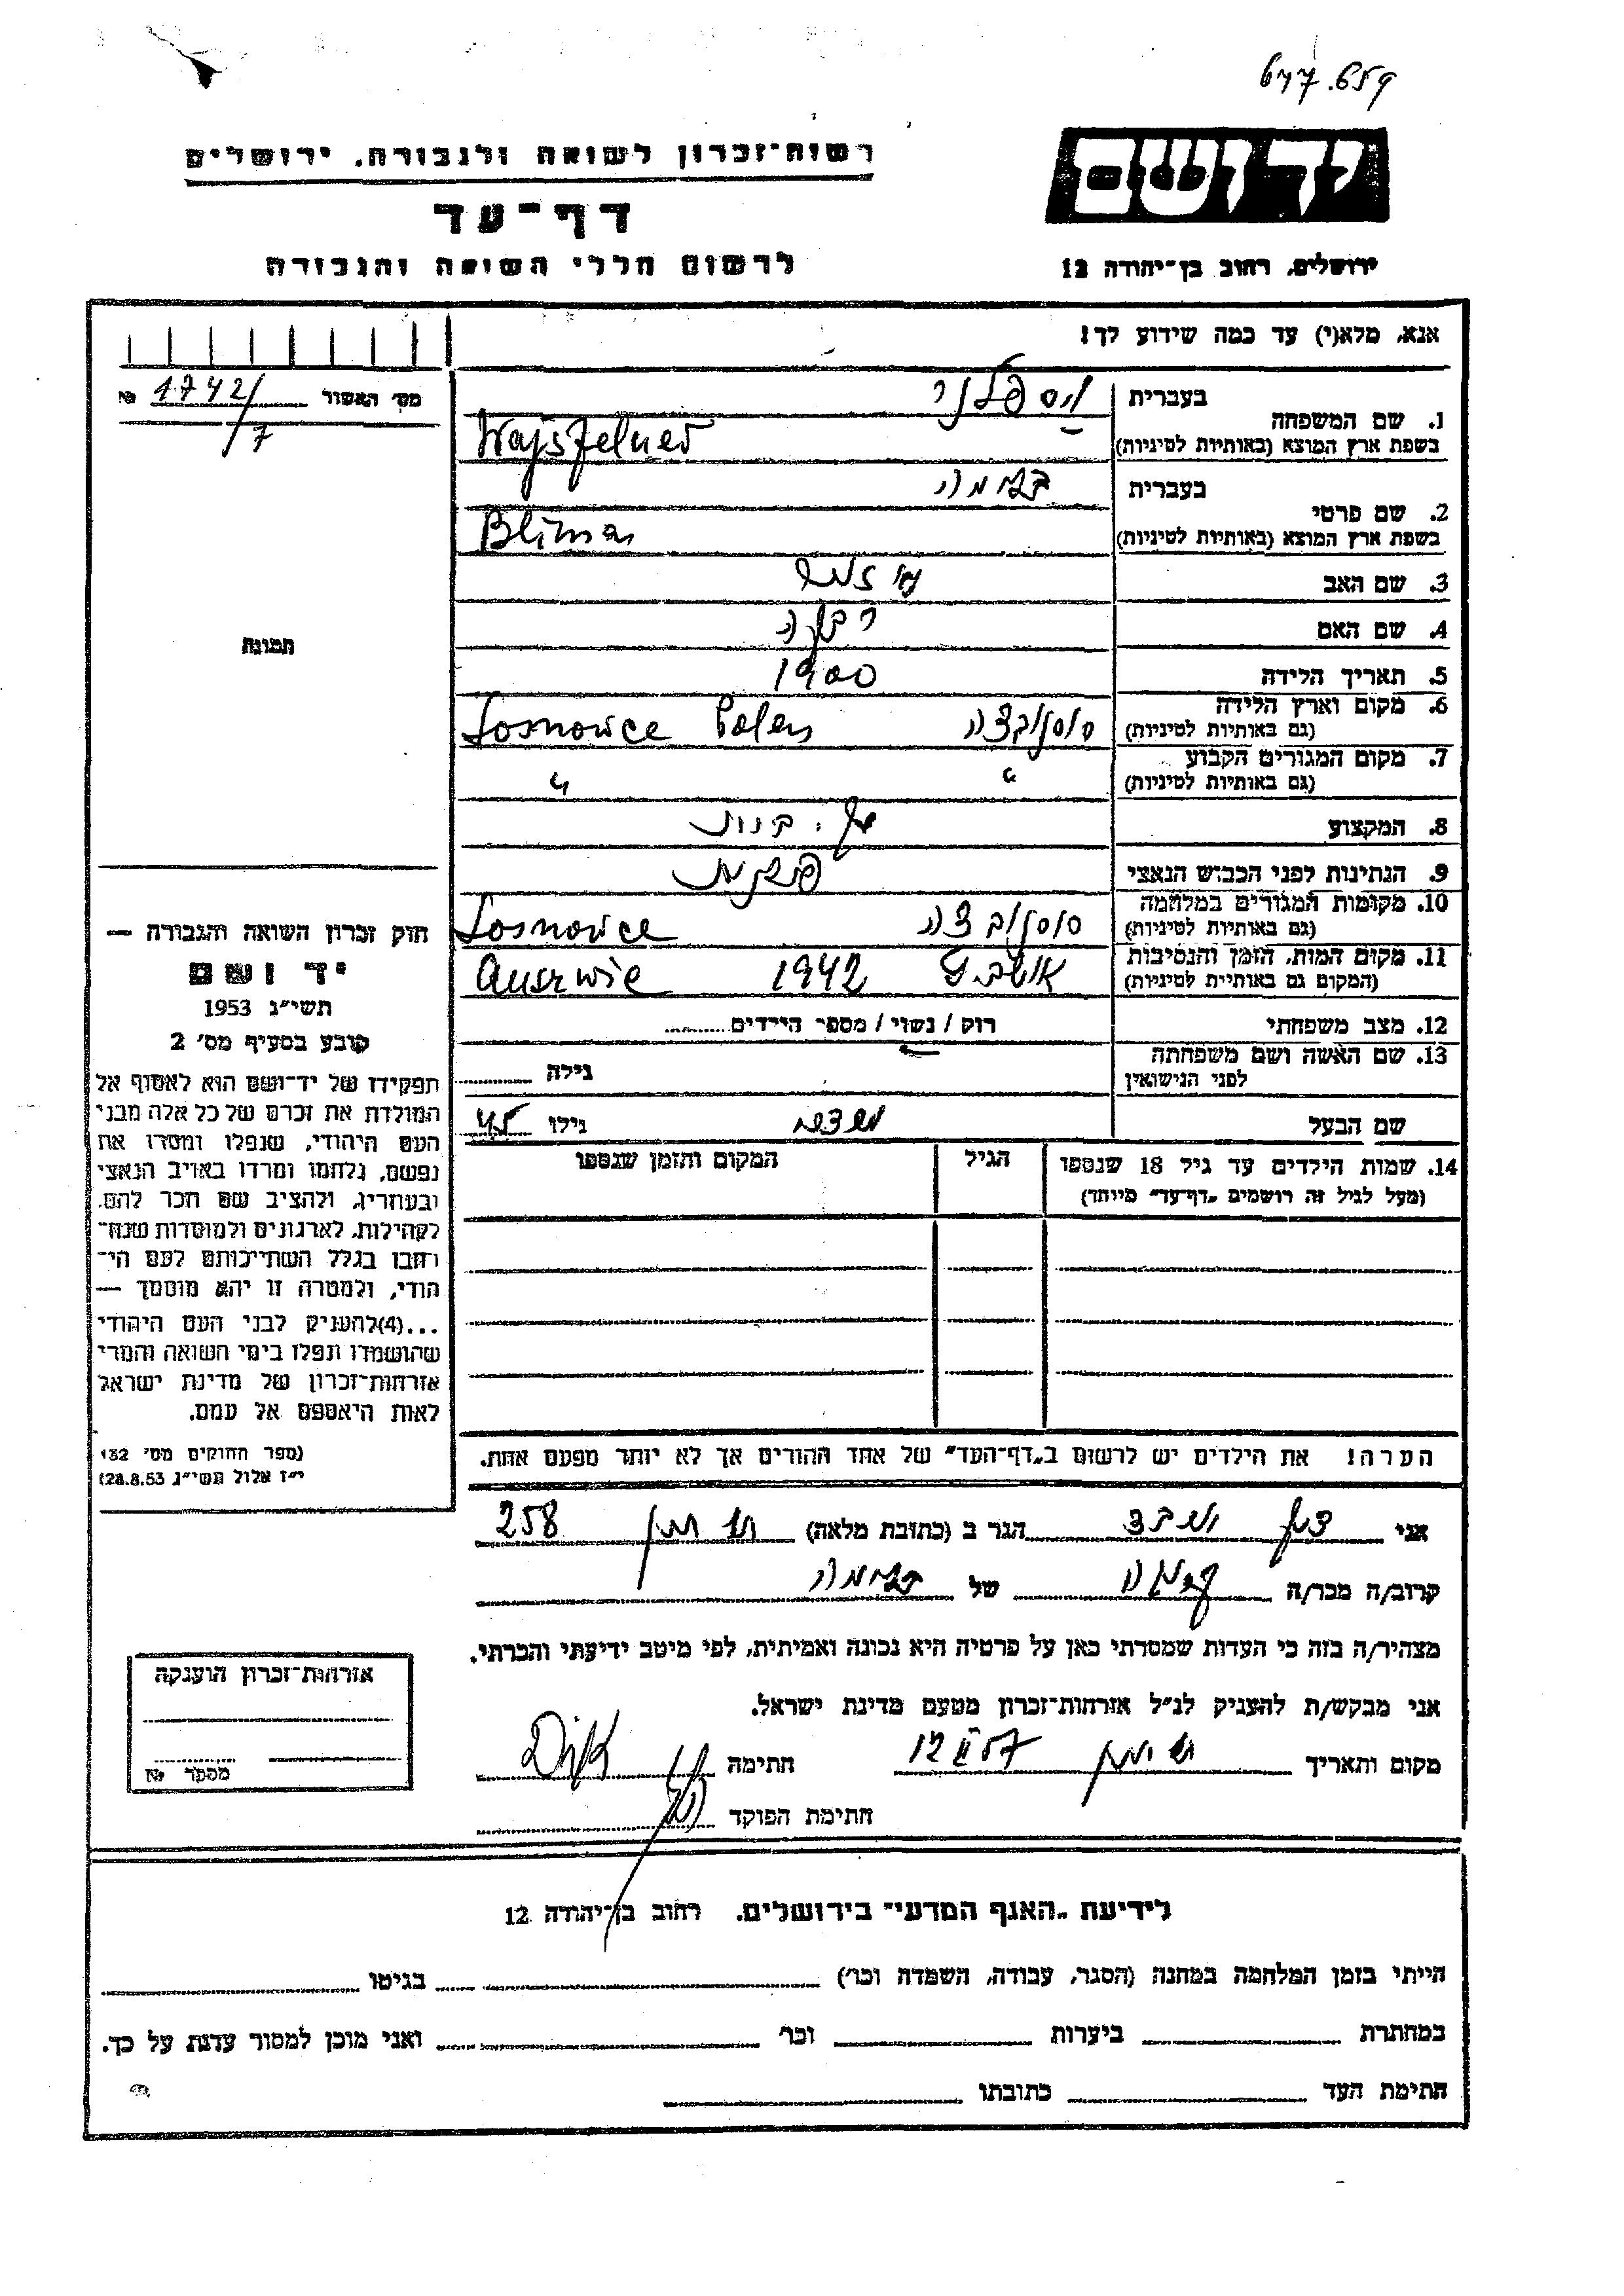 677.659
רשות־זכרון לשואה ולגבורה, ירושלים
יד ושם
דף־עד
לרשום חללי השואה והגבורה
ירושלים, רחוב בן־יהודה 12
אנא, מלא(י) עד כמה שידוע לך!
מס׳ האשור 1742/7 №
תמונה
1. שם המשפחה
בעברית
בשפת ארץ המוצא (באותיות לטיניות) Wajsfelner
2. שם פרטי
בעברית בלימה
בשפת ארץ המוצא (באותיות לטיניות) Blima
3. שם האב
4. שם האם רבקה
5. תאריך הלידה 1900
6. מקום וארץ הלידה (גם באותיות לטיניות) סוסנוביצה Sosnowce Polen
7. מקום המגורים הקבוע (גם באותיות לטיניות) " "
8. המקצוע
9. הנתינות לפני הכבוש הנאצי פולנית
10. מקומות המגורים במלחמה (גם באותיות לטיניות) סוסנוביצה Sosnowce
11. מקום המות, הזמן והנסיבות (המקום גם באותיות לטיניות) 1942 Auserwic
12. מצב משפחתי רוק / נשוי / מספר הילדים
13. שם האשה ושם משפחתה לפני הנישואין גילה
שם הבעל גילו 45
14. שמות הילדים עד גיל 18 שנספו (מעל לגיל זה רושמים „דף־עד” מיוחד) הגיל המקום והזמן שנספו
הערה! את הילדים יש לרשום ב„דף־העד” של אחד ההורים אך לא יותר מפעם אחת.
חוק זכרון השואה והגבורה —
יד ושם
תשי״ג 1953
קובע בסעיף מס׳ 2
תפקידו של יד־ושם הוא לאסוף אל
המולדת את זכרם של כל אלה מבני
העם היהודי, שנפלו ומסרו את
נפשם, נלחמו ומרדו באויב הנאצי
ובעוזריו, ולהציב שם וזכר להם,
לקהילות, לארגונים ולמוסדות שנח־
רבו בגלל השתייכותם לעם הי־
הודי, ולמטרה זו יהא מוסמך —
...(4)להעניק לבני העם היהודי
שהושמדו ונפלו בימי השואה והמרי
אזרחות־זכרון של מדינת ישראל
לאות היאספם אל עמם.
(ספר החוקים מס׳ 132
י״ז אלול תשי״ג 28.8.53)
אני הגר ב (כתובת מלאה) 258
קרוב/ה מכר/ה של בלימה
מצהיר/ה בזה כי העדות שמסרתי כאן על פרטיה היא נכונה ואמיתית, לפי מיטב ידיעתי והכרתי.
אני מבקש/ת להעניק לנ״ל אזרחות־זכרון מטעם מדינת ישראל.
מקום ותאריך חתימה
חתימת הפוקד
אזרחות־זכרון הוענקה
מספר №
לידיעת „האגף המדעי” בירושלים, רחוב בן־יהודה 12
הייתי בזמן המלחמה במחנה (הסגר, עבודה, השמדה וכו׳) בגיטו
במחתרת ביערות וכו׳ ואני מוכן למסור עדות על כך.
חתימת העד כתובתו